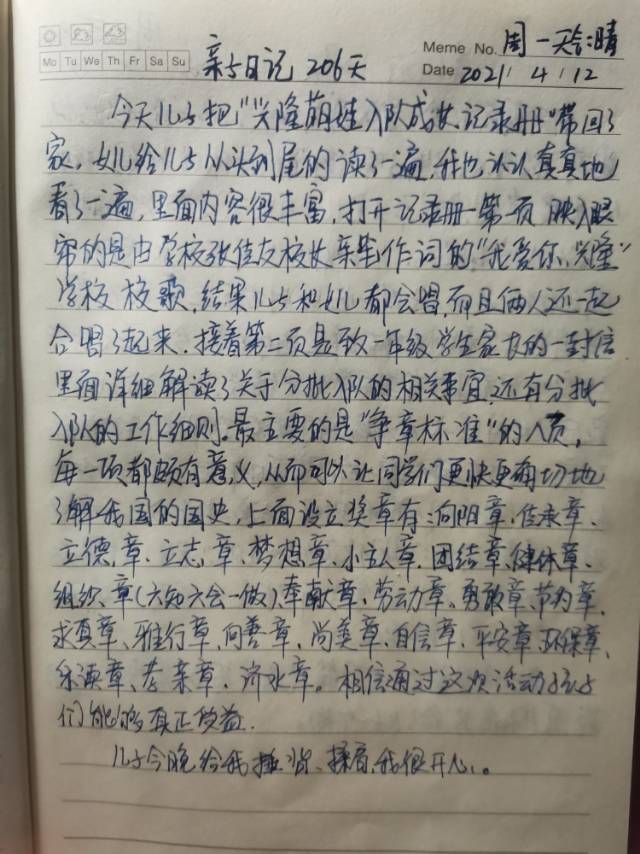 Mo Tu We Th Fr Sa Su
Meme No. 周一 天气:晴
Date 2021 4 12
亲子日记 206天
今天儿子把"兴隆萌娃入队成长记录册"带回了
家,女儿给儿子从头到尾的读了一遍,我也认认真真地
看了一遍,里面内容很丰富,打开记录册一第一页 映入眼
帘的是由学校张佳友校长亲笔作词的"我爱你,兴隆"
学校校歌,结果儿子和女儿都会唱,而且俩人还一起
合唱了起来.接着第二页是致一年级学生家长的一封信
里面详细解读了关于分批入队的相关事宜,还有分批
入队的工作细则。最主要的是"争章标准"的
每一项都颇有意义,从而可以让同学们更快更确切地
了解我国的国史,上面设立奖章有:向阳章、传承章、
立德章、立志章、梦想章、小主人章、团结章、健体章、
组织章(六知六会一做)、奉献章、劳动章、勇敢章、节约章、
求真章、雅行章、向善章、尚美章、自信章、平安章、环保章、
乐读章、孝亲章、济水章。相信通过这次活动孩子
们能够真正收益.
儿子今晚给我捶背、揉肩,我很开心。